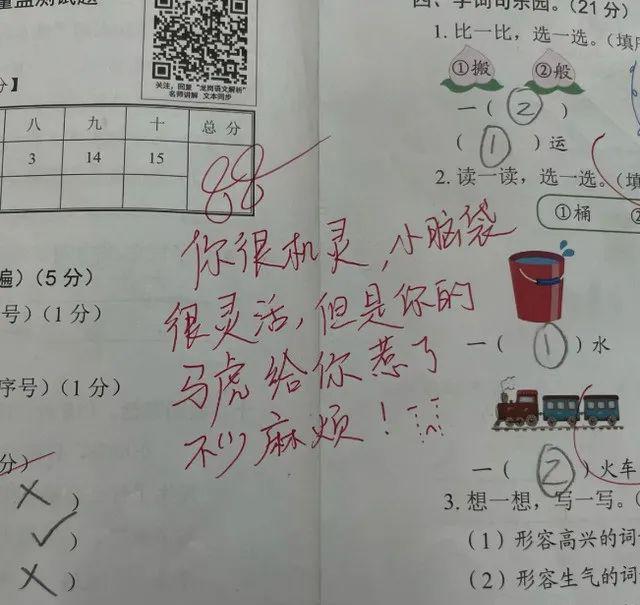 量监测试题
关注，回复“龙岗语文解析”
名师讲解 文本同步
分】
八 九 十 总 分
3 14 15
88
你很机灵，小脑袋
很灵活，但是你的
马虎给你惹了
不少麻烦！
遍）（5 分）
号）（1 分）
序号）（1 分）
分）
× ）
√ ）
× ）
四、字词句乐园。（21 分）
1. 比一比，选一选。（填序
①搬 ②般
一（ ② ）
（ ① ）运
2. 读一读，选一选。（填
①桶 ②
一（ ① ）水
一（ ② ）火车
3. 想一想，写一写。（
（1）形容高兴的词语
（2）形容生气的词语